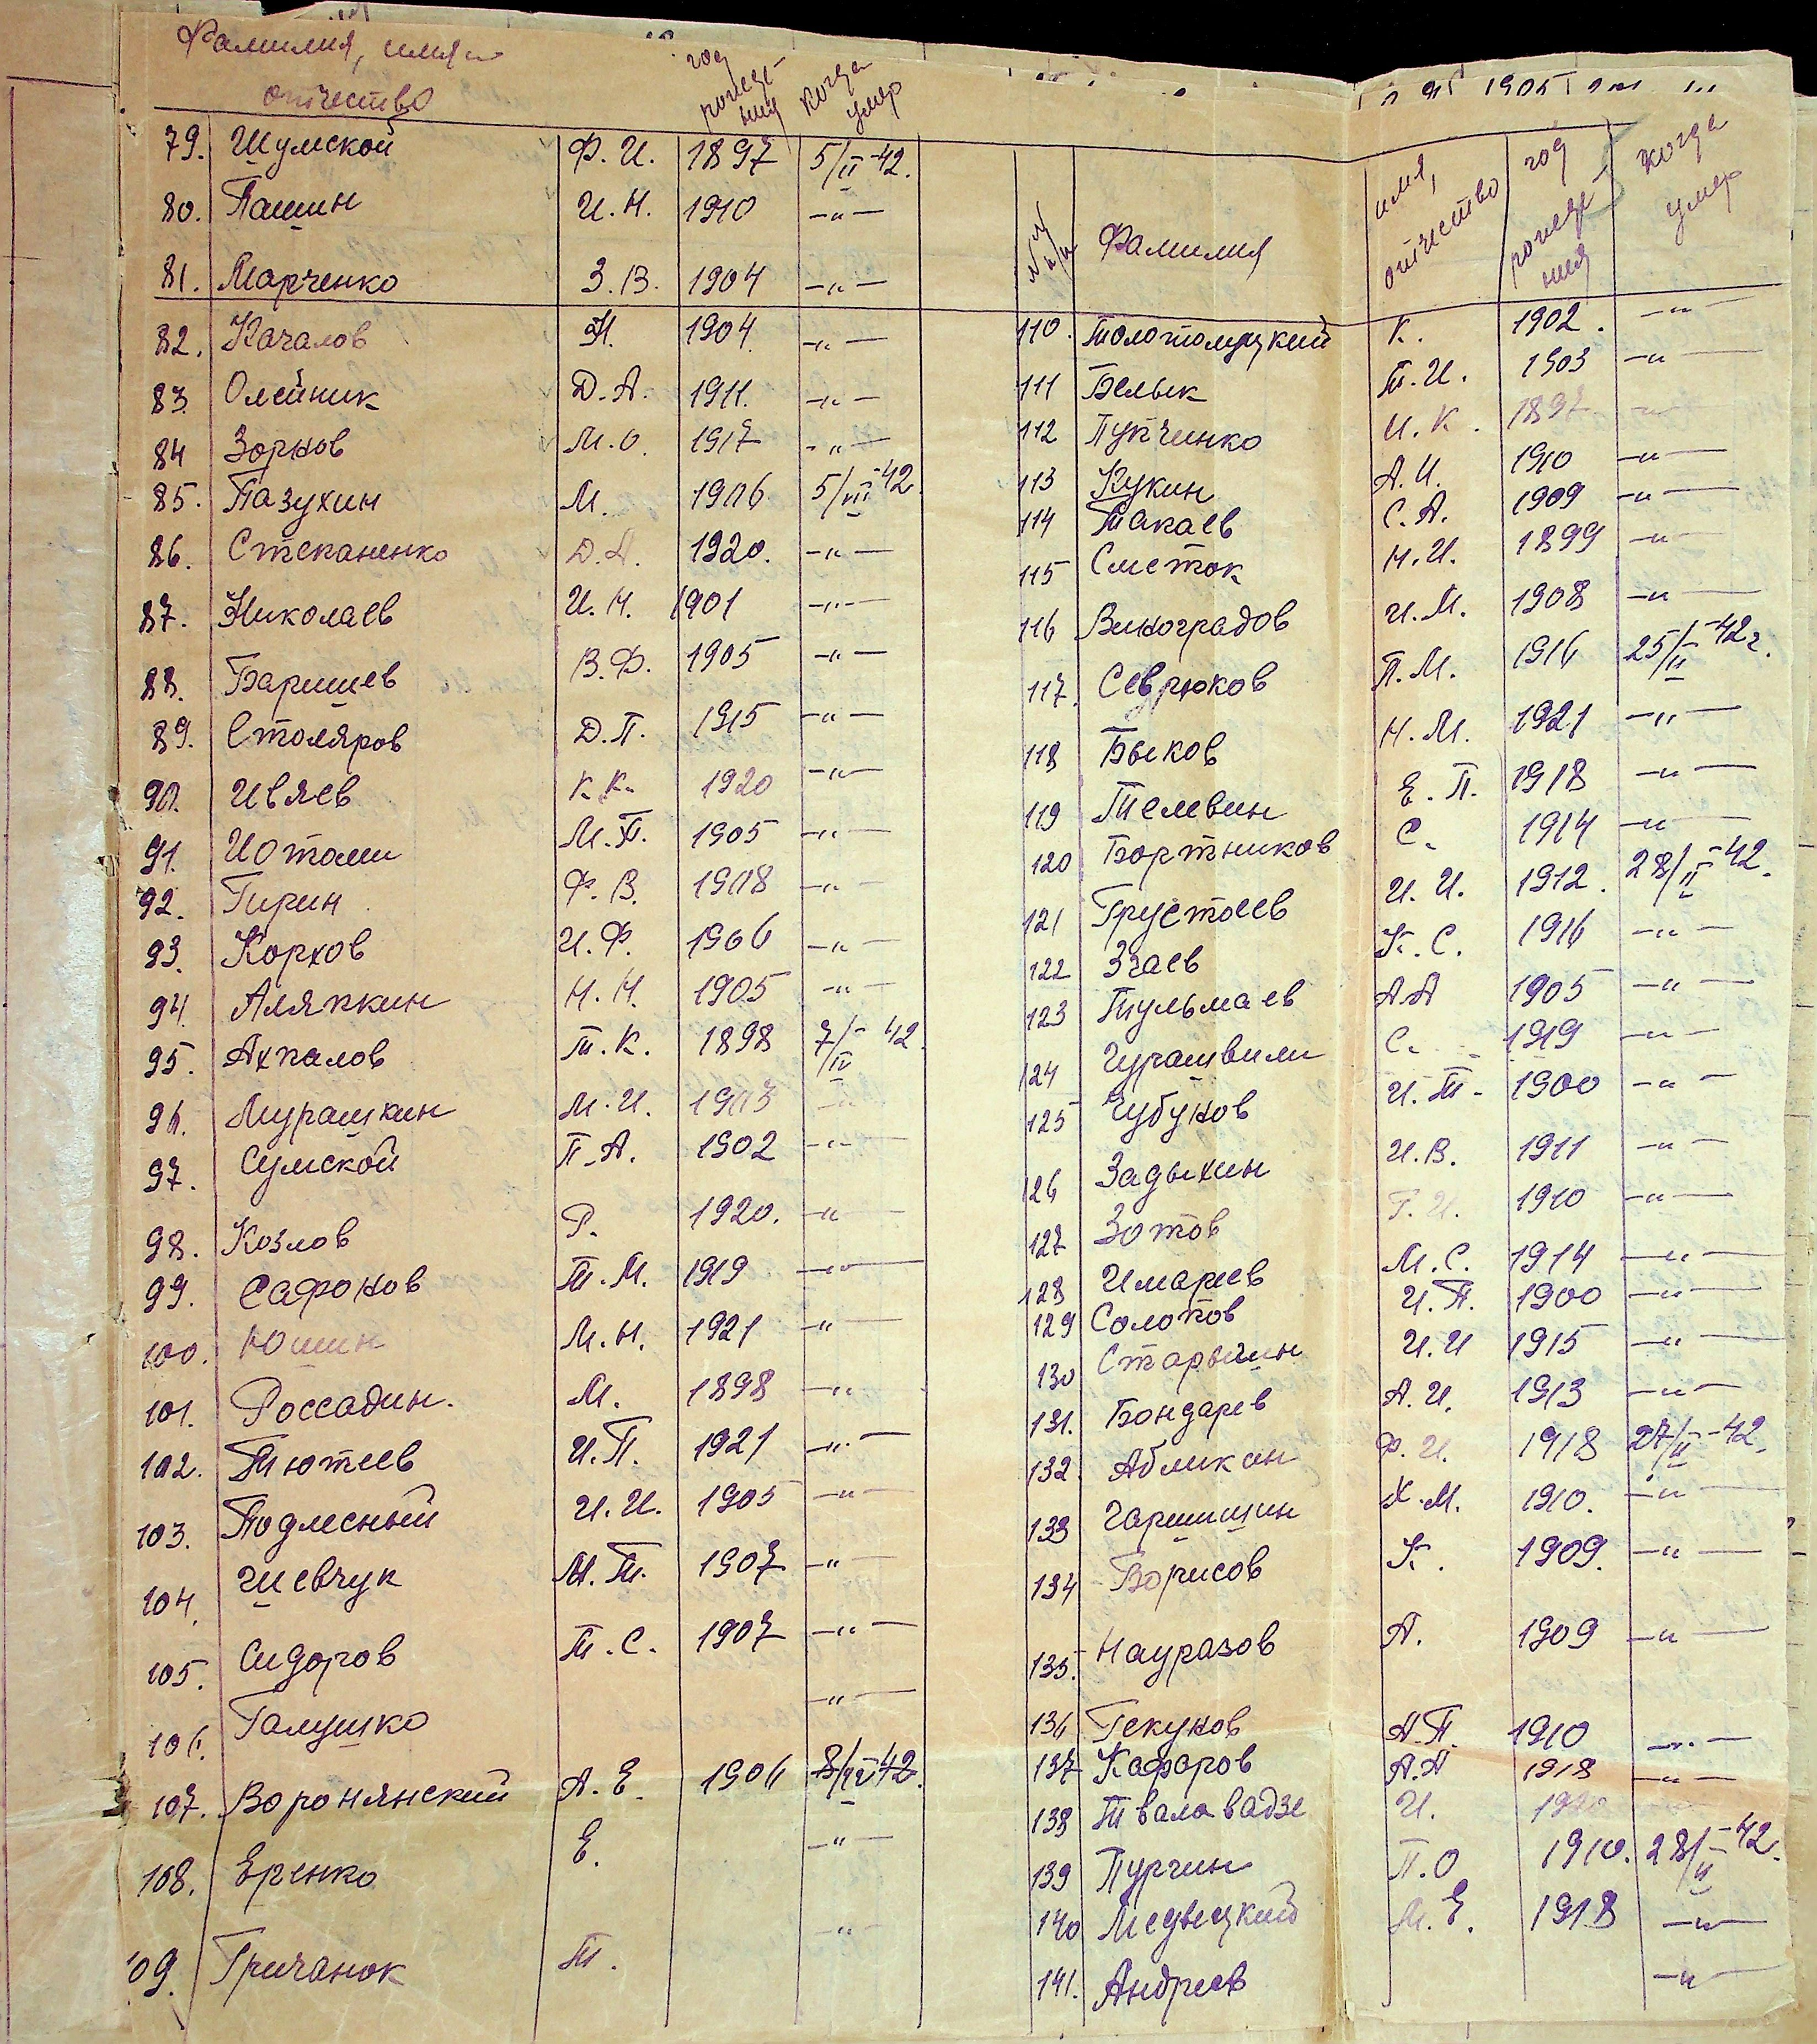 Фамилия, имя и
отчество
год рожде-
ния
когда
умер
79. Шумской Ф. И. 1897 5/II-42.
80. Пашин И. Н. 1910 —"—
81. Марченко З. В. 1904 —"—
82. Качалов Н. 1904. —"—
83. Олейник Д. А. 1911. —"—
84 Зорнов М. О. 1917 —"—
85. Пазухин М. 1906. 5/III-42.
86. Степаненко Д. А. 1920. —"—
87. Николаев И. Н. 1901 —"—
88. Баришев В. Ф. 1905 —"—
89. Столяров Д. П. 1915 —"—
90. Ивлев К. К. 1920 —"—
91. Иотоми М. П. 1905 —"—
92. Гирин Ф. В. 1908 —"—
93. Корхов И. Ф. 1906 —"—
94. Аляпкин Н. Н. 1905 —"—
95. Ахпалов Т. К. 1898 7/IV-42.
96. Мурашкин М. И. 1903 —"—
97. Сумской П. А. 1902 —"—
98. Козлов Р. 1920. —"—
99. Сафонов Т. М. 1919 —"—
100. Юшин М. Н. 1921 —"—
101. Россадин. М. 1898 —"
102. Тютеев И. П. 1921 —"—
103. Подлесный И. И. 1905 —"—
104. Шевчук М. Т. 1907 —"—
105. Сидоров Т. С. 1907 —"—
106. Галушко —"—
107. Воронянский А. Е. 1906 8/IV-42.
108. Еренко Е. —"—
109. Гричанок Т. —"—
№№
п/п
Фамилия
имя,
отчество
год
рожде-
ния
когда
умер
110. К. 1902. —"—
111 Белык Т. И. 1903 —"—
112 Пупченко И. К. 1897 —"—
113 Кукин А. И. 1910 —"—
114 Такаев С. А. 1909 —"—
115 Сметок Н. И. 1899 —"—
116 Виноградов И. М. 1908 —"—
117. Севрюков П. М. 1916 25/II-42г.
118 Быков Н. М. 1921 —"—
119 Телевин Е. П. 1918 —"—
120 Бортников С. 1914 —"—
121 И. И. 1912. 28/II-42.
122 Згаев К. С. 1916 —"—
123 Тульмаев А. А 1905 —"—
124 Чурашвили С. 1919 —"—
125 Чубуков И. Т. 1900 —"—
126 Задыхин И. В. 1911 —"—
127 Зотов Г. И. 1910 —"—
128 Имареев М. С. 1914 —"—
129 Солопов И. П. 1900 —"—
130 Старышин И. И 1915 —"—
131. Бондарев А. И. 1913 —"—
132. Абликин Ф. И. 1918 27/II-42.
133 Гаршишин Х. М. 1910. —"—
134 Борисов К. 1909. —"—
135. Науразов А. 1909 —"—
136 Гекунов А. П. 1910 —"—
137 Кафаров А. А 1918 —"—
138 Твалавадзе И.
139 Пургин П. О 1910. 28/II-42.
140 Медвецкий М. Е. 1918 —"—
141. Андреев —"—